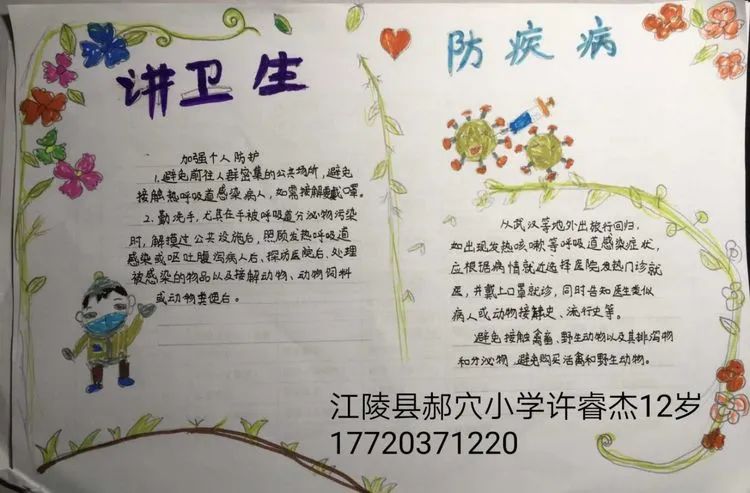 讲卫生
加强个人防护
1.避免前往人群密集的公共场所,避免
接触热呼吸道感染病人,如需接触戴口罩。
2.勤洗手,尤其在手被呼吸道分泌物污染
时、触摸过公共设施后、照顾发热呼吸道
感染或呕吐腹泻病人后、探访医院后、处理
被感染的物品以及接触动物、动物饲料
或动物粪便后。
防疾病
从武汉等地外出旅行回归,
如出现发热咳嗽等呼吸道感染症状,
应根据病情就近选择医院发热门诊就
医,并戴上口罩就诊,同时告知医生类似
病人或动物接触史、流行史等。
避免接触禽畜、野生动物以及其排泻物
和分泌物、避免购买活禽和野生动物。
江陵县郝穴小学许睿杰12岁
17720371220